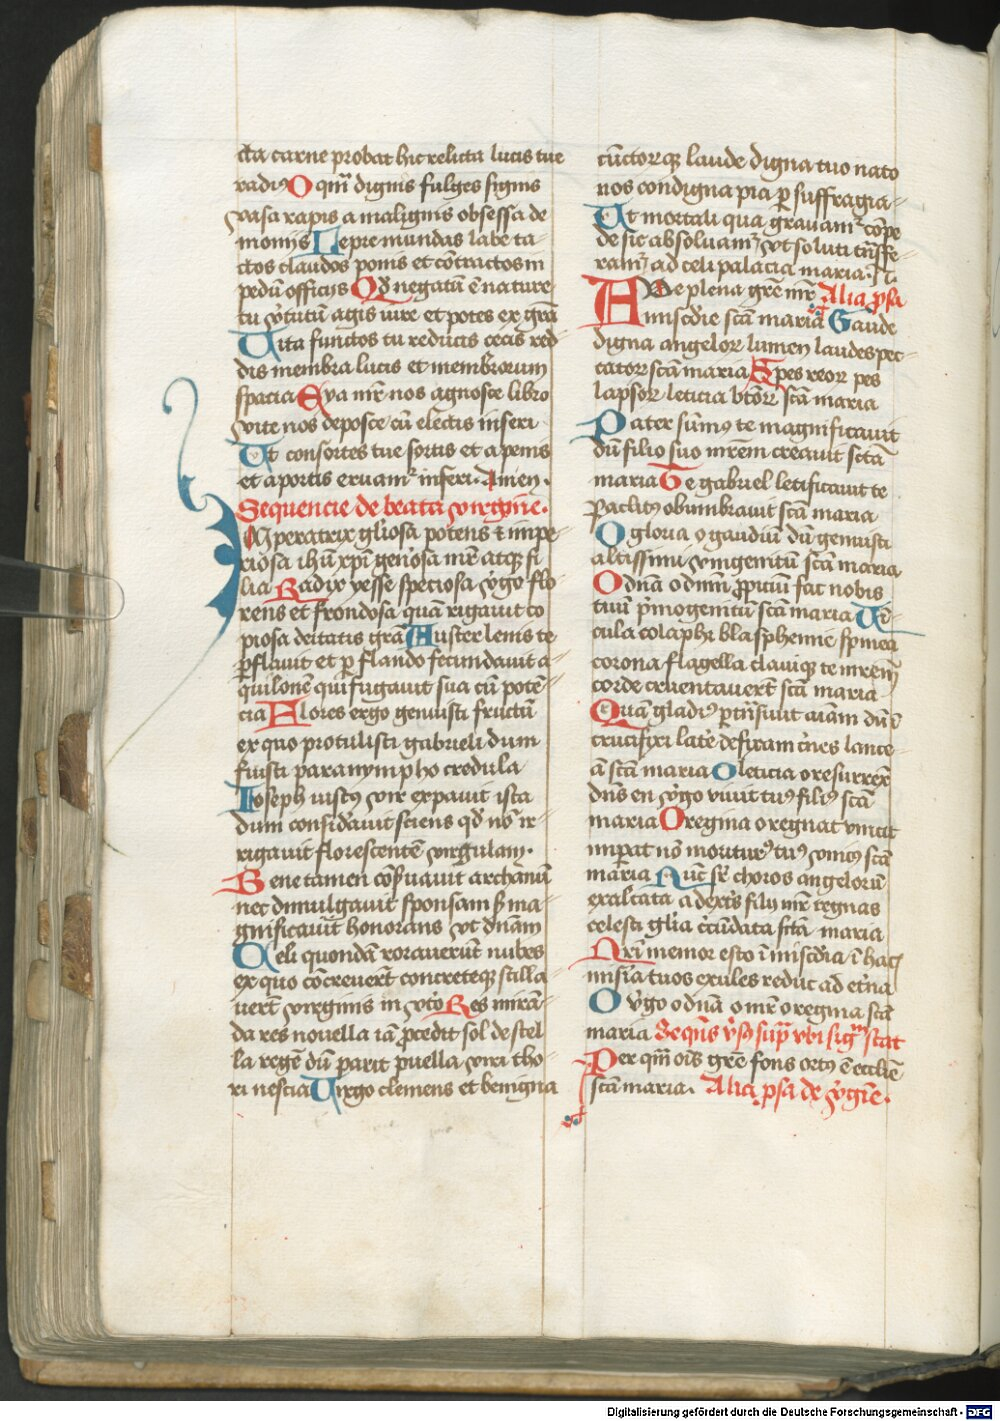 cta carne probat hic relicta lucis tue
radi9 O qm̄ dignis fulges signis
vasa rapis a malignis obsessa de
moniis Lepre mundas labe ta
ctos claudos ponis et cōtractos in
pedū officiis Qd negatū ē nature
tu v̓tutū agis iure et potes ex grā
Vita functos tu reducis cecis red
dis membra lucis et membrorum
spacia Eya mr̄ nos agnosce libro
vite nos deposce cū electis inseri
Vt consortes tue sortis et a penis
et a portis eruamr inferi. Amen.
Sequencie de beata virgine.
Imperatrix gl̓iosa potens et impe
riosa ihū xpi gen̓osa mr̄ atq; fi
lia Radix yesse speciosa v̓go flo
rens et frondosa quā rigauit co
piosa deitatis grā Auster lenis te
ꝑflauit et ꝑflando fecundauit a
quilonē qui fugauit sua cū potē
cia Flores ergo genuisti fructū
ex quo protulisti gabrieli dum
fuisti paranympho credula
Ioseph iust9 vir expauit ista
dum consid̓auit sciens qd nō ir
rigauit florescentē virgulam.
Bene tamen cōs̓uauit archanū
nec diuulgauit sponsam s; ma
gnificauit honorans vt dn̄am
Celi quondā rorauerūt nubes
ex quo cōcreuerūt concreteq; stilla
uerūt virginis in vt̓o Res mirā
da res nouella iā ꝓcedit sol de stel
la regē dū parit puella viri tho
ri nescia Virgo clemens et benigna
cūctorq; laude digna tuo nato
nos condigna pia ꝑ suffragia
Vt mortali qua grauamr cōpe
de sic absoluamr vt soluti trāsfe
ramr ad celi palacia maria.
Ave plena grē mr̄ Alia ꝓsa
miscd̓ie scā maria Gaude
digna angelor lumen laudes pec
cator scā maria Spes reor pes
lapsor leticia btōr scā maria
Pater sūm9 te magnificauit
dū filio suo mrēm creauit sctā
maria Te gabriel letificauit te
Paclit9 obumbrauit scā maria
O gloria o gaudiū dū genuisti
altissimi vnigenitū scā maria
O dn̄a o dnm̄ ꝓpiciū fac nobis
tuū p̓mogenitū scā maria Vē
cula colaphi blasphemie spinea
corona flagella clauiq; te mrēm
corde cruentauerūt scā maria
Quā gladi9 ꝑtrāsiuit aīam dū ī
crucifixi late̓ defixam c̓nes lance
ā scā maria O leticia o resurrex̄
dn̄s en v̓go viuit tu9 fili9 scā
maria O regina o regnat vincit
imꝑat nō moritur tu9 vnic9 scā
maria Nūc sr̄ choros angelorū
exaltata a dext̓s filii mr̄ regnas
celesti gl̓ia c̓cūdata sctā maria
Nr̄i memor esto ī miscd̓ia ī hac
mis̓ia tuos exules reduc ad et̓na
O v̓go o dn̄a o mr̄ o regina scā
maria Seqn̄s v̓s9 sup̄ vbi sigm̄ stat
Per qm̄ oīs grē fons ort9 ē ecclīe
scā maria. Alia ꝓsa de v̓gine.
Digitalisierung gefördert durch die Deutsche Forschungsgemeinschaft - DFG